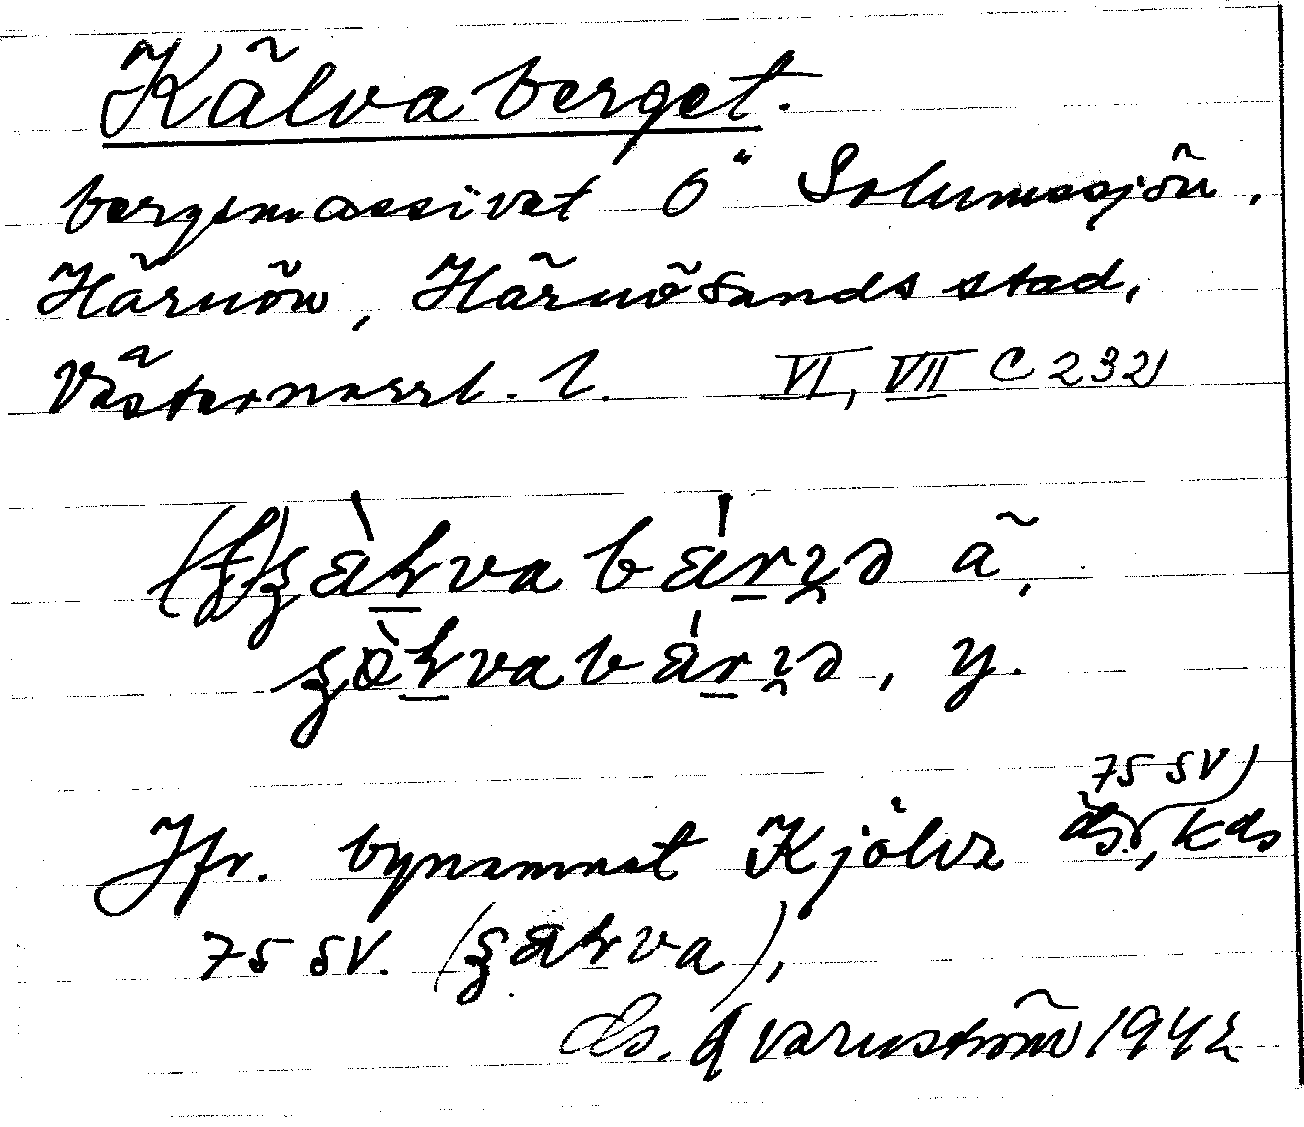 Kälvaberget.
bergsmassivet Ö Solumssjön,
Härnön, Härnösands stad,
Västernorrl. l. VI, VII C 232
ä,
, y.
75 SV
Jfr. bynamnet Kjölva ds., kds
75 SV.
ds. Qvarnström 1942